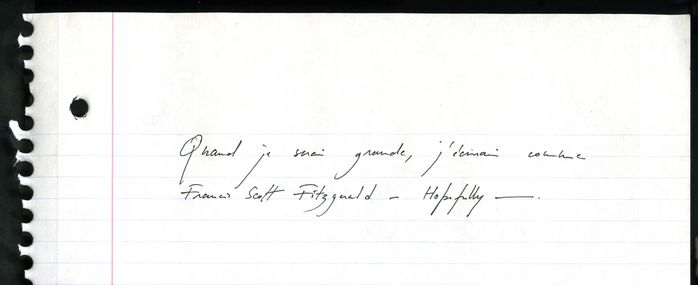 Quand je serai grande, j'écrirai comme
Francis Scott Fitzgerald - Hopefully —.